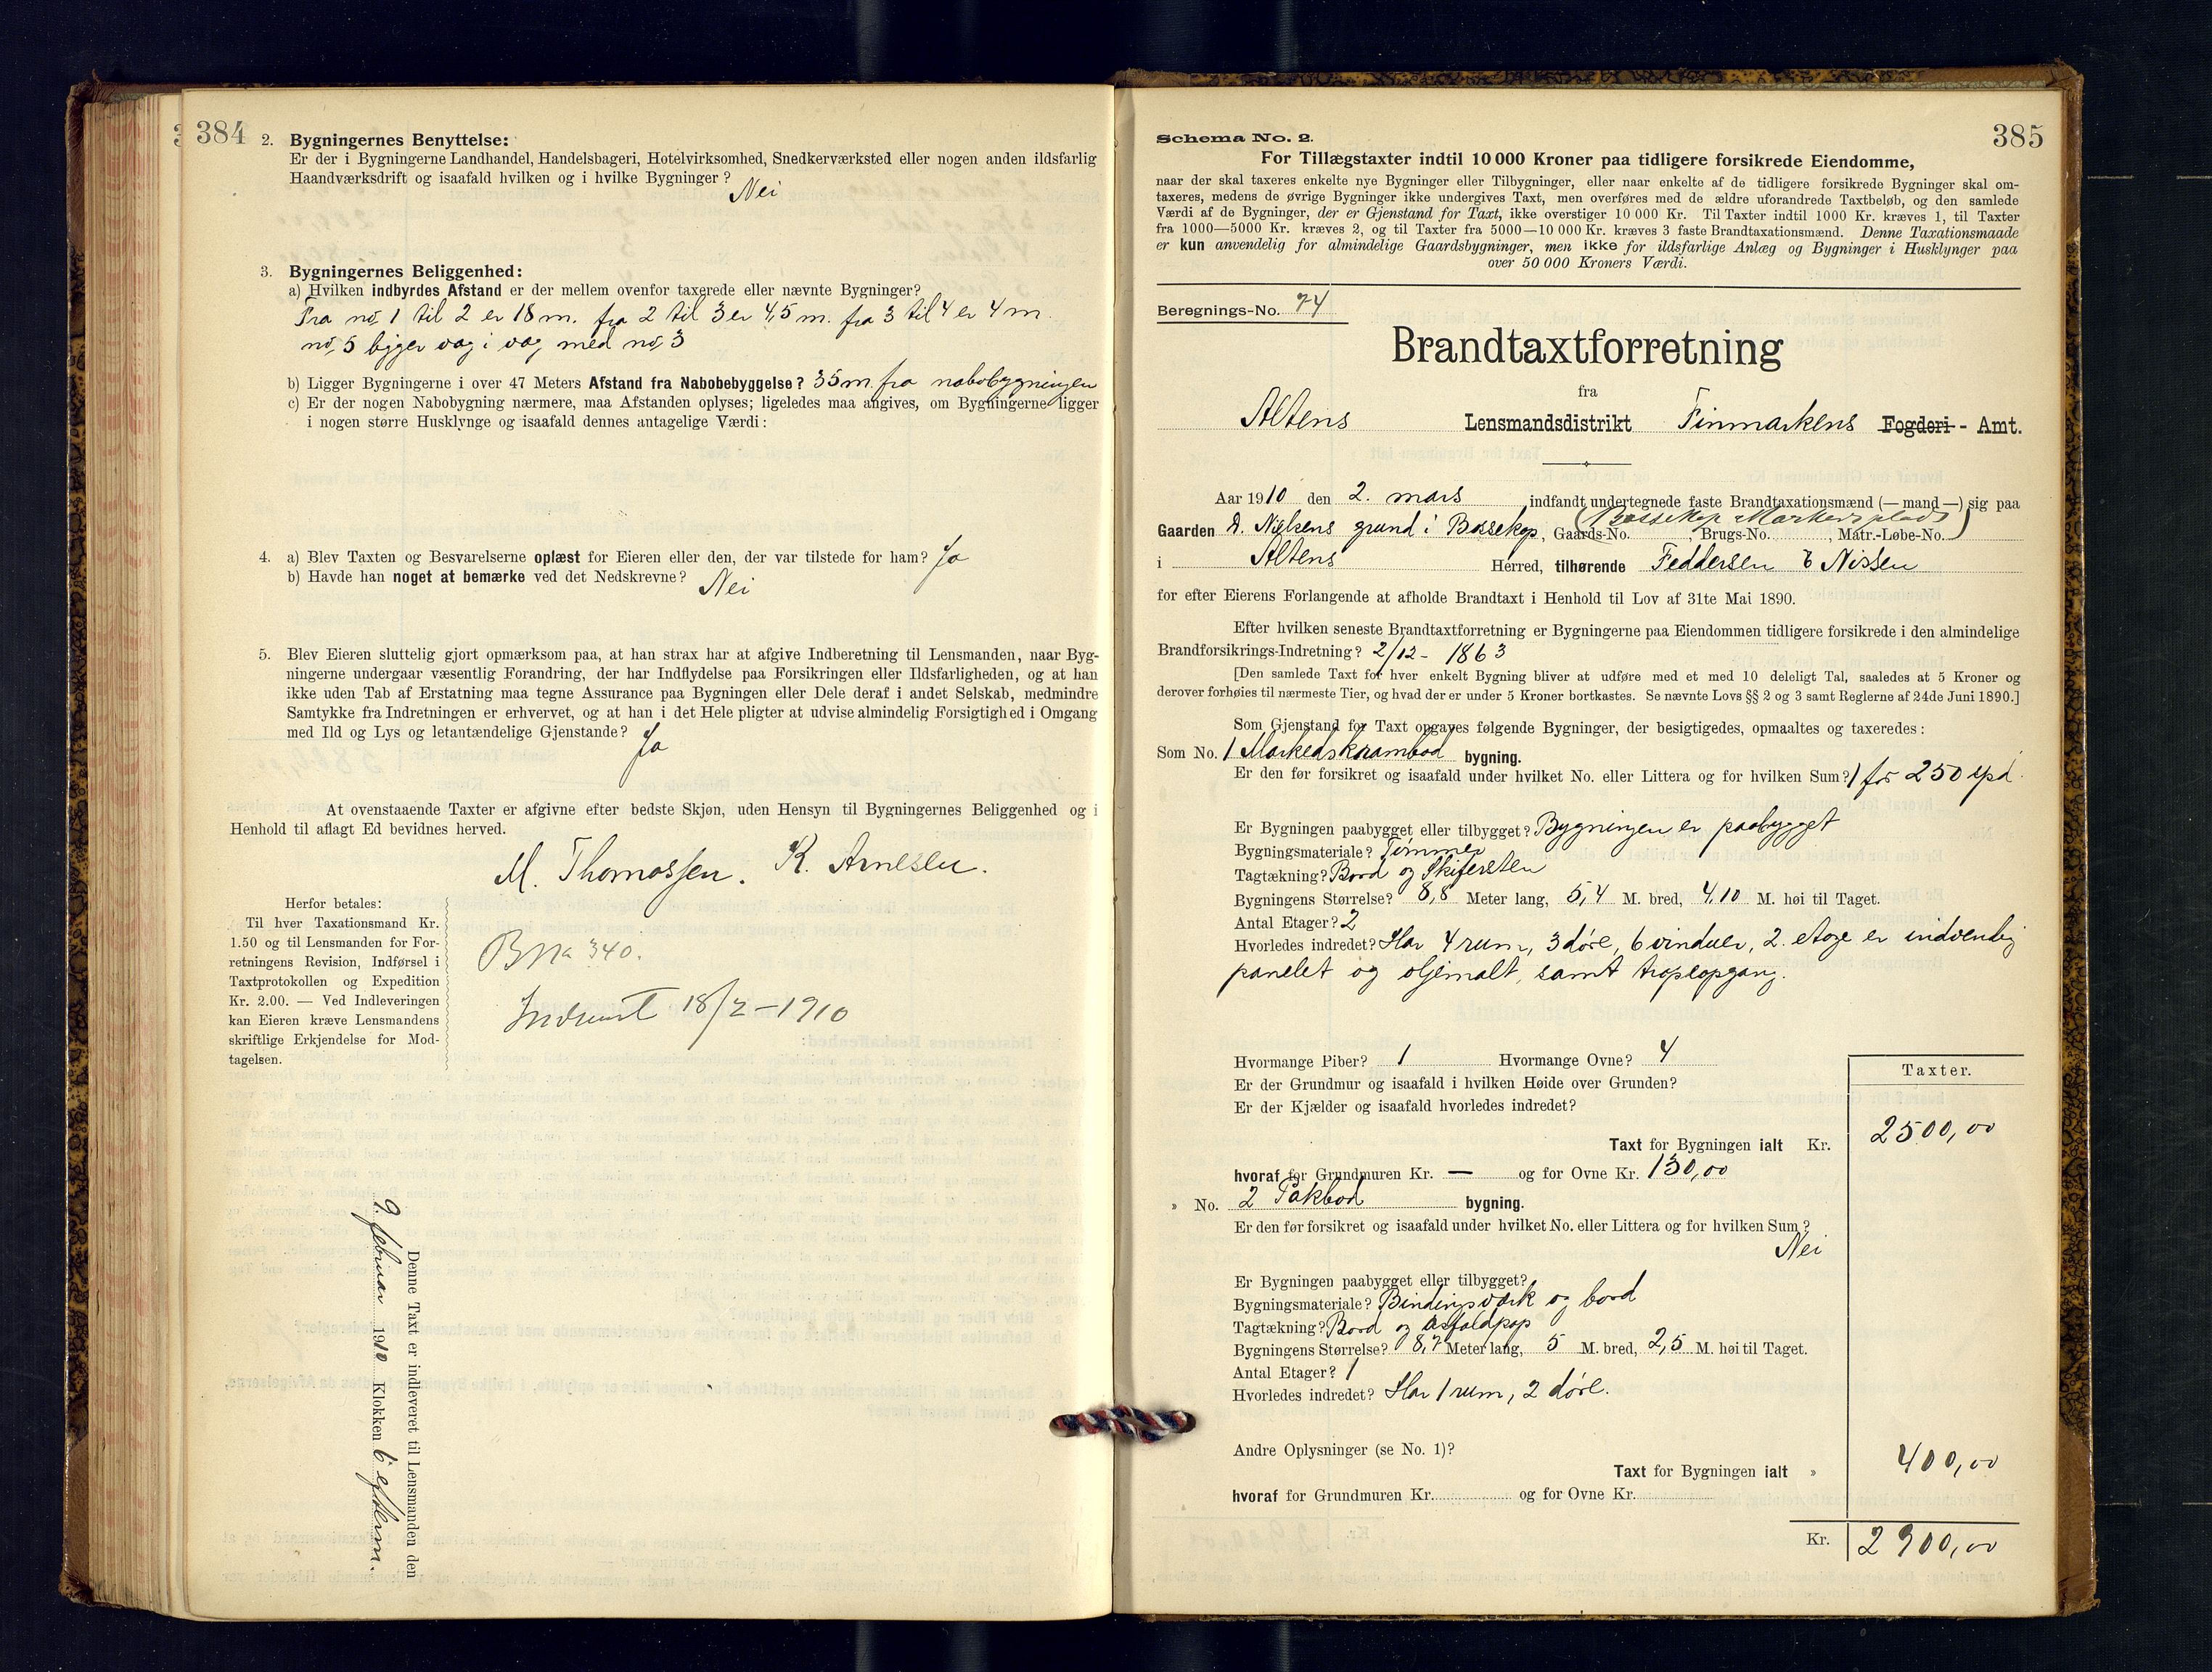 384
2. Bygningernes Benyttelse:
Er der i Bygningerne Landhandel, Handelsbageri, Hotelvirksomhed, Snedkerværksted eller nogen anden ildsfarlig
Haandværksdrift og isaafald hvilken og i hvilke Bygninger? Nei
3. Bygningernes Beliggenhed:
a) Hvilken indbyrdes Afstand er der mellem ovenfor taxerede eller nævnte Bygninger?
Fra no, 1 til 2 er 18 m. fra 2 til 3 er 4,5 m. fra 3 til 4 er 4 m.
no, 5 ligger væg i væg med no, 3
b) Ligger Bygningerne i over 47 Meters Afstand fra Nabobebyggelse? 35 m. fra nabobygningen
c) Er der nogen Nabobygning nærmere, maa Afstanden oplyses; ligeledes maa angives, om Bygningerne ligger
i nogen større Husklynge og isaafald dennes antagelige Værdi:
4. a) Blev Taxten og Besvarelserne oplæst for Eieren eller den, der var tilstede for ham? Ja
b) Havde han noget at bemærke ved det Nedskrevne? Nei
5. Blev Eieren sluttelig gjort opmærksom paa, at han strax har at afgive Indberetning til Lensmanden, naar Byg-
ningerne undergaar væsentlig Forandring, der har Indflydelse paa Forsikringen eller Ildsfarligheden, og at han
ikke uden Tab af Erstatning maa tegne Assurance paa Bygningen eller Dele deraf i andet Selskab, medmindre
Samtykke fra Indretningen er erhvervet, og at han i det Hele pligter at udvise almindelig Forsigtighed i Omgang
med Ild og Lys og letantændelige Gjenstande? Ja
At ovenstaaende Taxter er afgivne efter bedste Skjøn, uden Hensyn til Bygningernes Beliggenhed og i
Henhold til aflagt Ed bevidnes herved.
M. Thomassen. K. Arnesen.
Herfor betales:
Til hver Taxationsmand Kr.
1.50 og til Lensmanden for For-
retningens Revision, Indførsel i
Taxtprotokollen og Expedition
Kr. 2.00. — Ved Indleveringen
kan Eieren kræve Lensmandens
skriftlige Erkjendelse for Mod-
tagelsen.
340.
18/2 - 1910
Denne Taxt er indleveret til Lensmanden den
9. februar 1910 Klokken 6 efterm.
385
Schema No. 2.
For Tillægstaxter indtil 10 000 Kroner paa tidligere forsikrede Eiendomme,
naar der skal taxeres enkelte nye Bygninger eller Tilbygninger, eller naar enkelte af de tidligere forsikrede Bygninger skal om-
taxeres, medens de øvrige Bygninger ikke undergives Taxt, men overføres med de ældre uforandrede Taxtbeløb, og den samlede
Værdi af de Bygninger, der er Gjenstand for Taxt, ikke overstiger 10 000 Kr. Til Taxter indtil 1000 Kr. kræves 1, til Taxter
fra 1000—5000 Kr. kræves 2, og til Taxter fra 5000—10 000 Kr. kræves 3 faste Brandtaxationsmænd. Denne Taxationsmaade
er kun anvendelig for almindelige Gaardsbygninger, men ikke for ildsfarlige Anlæg og Bygninger i Husklynger paa
over 50 000 Kroners Værdi.
Beregnings-No. 74
Brandtaxtforretning
fra
Altens Lensmandsdistrikt Finmarkens Fogderi - Amt.
Aar 1910 den 2. mars indfandt undertegnede faste Brandtaxationsmænd (— mand —) sig paa
(Bossekop Markedsplads)
Gaarden D. Nielsens grund i Bossekop, Gaards-No. , Brugs-No. , Matr.-Løbe-No.
i Altens Herred, tilhørende Feddersen & Nissen
for efter Eierens Forlangende at afholde Brandtaxt i Henhold til Lov af 31te Mai 1890.
Efter hvilken seneste Brandtaxtforretning er Bygningerne paa Eiendommen tidligere forsikrede i den almindelige
Brandforsikrings-Indretning? 2/12 - 1863
[Den samlede Taxt for hver enkelt Bygning bliver at udføre med et med 10 deleligt Tal, saaledes at 5 Kroner og
derover forhøies til nærmeste Tier, og hvad der er under 5 Kroner bortkastes. Se nævnte Lovs §§ 2 og 3 samt Reglerne af 24de Juni 1890.]
Som Gjenstand for Taxt opgaves følgende Bygninger, der besigtigedes, opmaaltes og taxeredes:
Som No. 1 Markedskrambod bygning.
Er den før forsikret og isaafald under hvilket No. eller Littera og for hvilken Sum? 1 for 250 spd.
Er Bygningen paabygget eller tilbygget? Bygningen er paabygget
Bygningsmateriale? Tømmer
Tagtækning? Bord og Skifersten
Bygningens Størrelse? 8,8 Meter lang, 5,4 M. bred, 4,10 M. høi til Taget.
Antal Etager? 2
Hvorledes indredet? Har 4 rum, 3 døre, 6 vinduer, 2. etage er indvendig
panelet og oljemalt, samt trapeopgang.
Hvormange Piber? 1 Hvormange Ovne? 4
Er der Grundmur og isaafald i hvilken Høide over Grunden?
Er der Kjælder og isaafald hvorledes indredet?
Taxter.
Taxt for Bygningen ialt Kr. 2500,00
hvoraf for Grundmuren Kr. — og for Ovne Kr. 130,00
» No. 2 Pakbod bygning.
Er den før forsikret og isaafald under hvilket No. eller Littera og for hvilken Sum?
Nei
Er Bygningen paabygget eller tilbygget?
Bygningsmateriale? Bindingsværk og bord
Tagtækning? Bord og asfaldpap
Bygningens Størrelse? 8,7 Meter lang, 5 M. bred, 2,5 M. høi til Taget.
Antal Etager? 1
Hvorledes indredet? Har 1 rum, 2 døre.
Andre Oplysninger (se No. 1)?
Taxt for Bygningen ialt » 400,00
hvoraf for Grundmuren Kr. og for Ovne Kr.
Kr. 2900,00